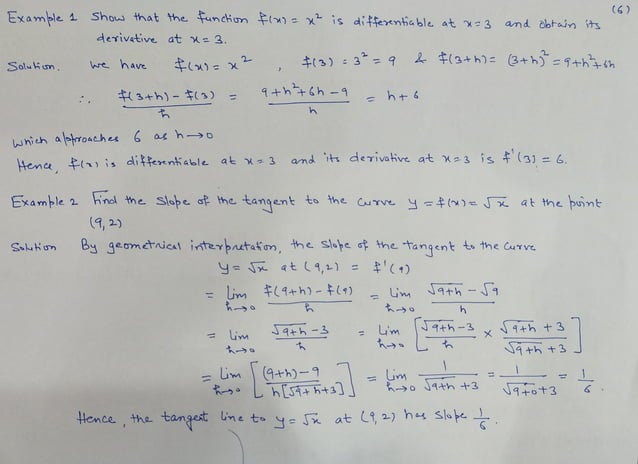 (6)
Example 1 Show that the function f(x) = x² is differentiable at x=3 and obtain its
derivative at x=3.
Solution. We have f(x) = x² , f(3) = 3² = 9 & f(3+h) = (3+h)² = 9+h²+6h
∴ (f(3+h) - f(3))/h = (9+h²+6h-9)/h = h+6
which approaches 6 as h→0
Hence, f(x) is differentiable at x=3 and its derivative at x=3 is f'(3) = 6.
Example 2 Find the slope of the tangent to the curve y = f(x) = √x at the point
(9,2)
Solution By geometrical interpretation, the slope of the tangent to the curve
y = √x at (9,2) = f'(9)
= Lim h→0 (f(9+h) - f(9))/h = Lim h→0 (√(9+h) - √9)/h
= Lim h→0 (√(9+h) - 3)/h = Lim h→0 [(√(9+h) - 3)/h × (√(9+h) + 3)/(√(9+h) + 3)]
= Lim h→0 [((9+h)-9)/(h[√(9+h)+3])] = Lim h→0 1/(√(9+h) + 3) = 1/(√(9+0)+3) = 1/6.
Hence, the tangent line to y = √x at (9,2) has slope 1/6.